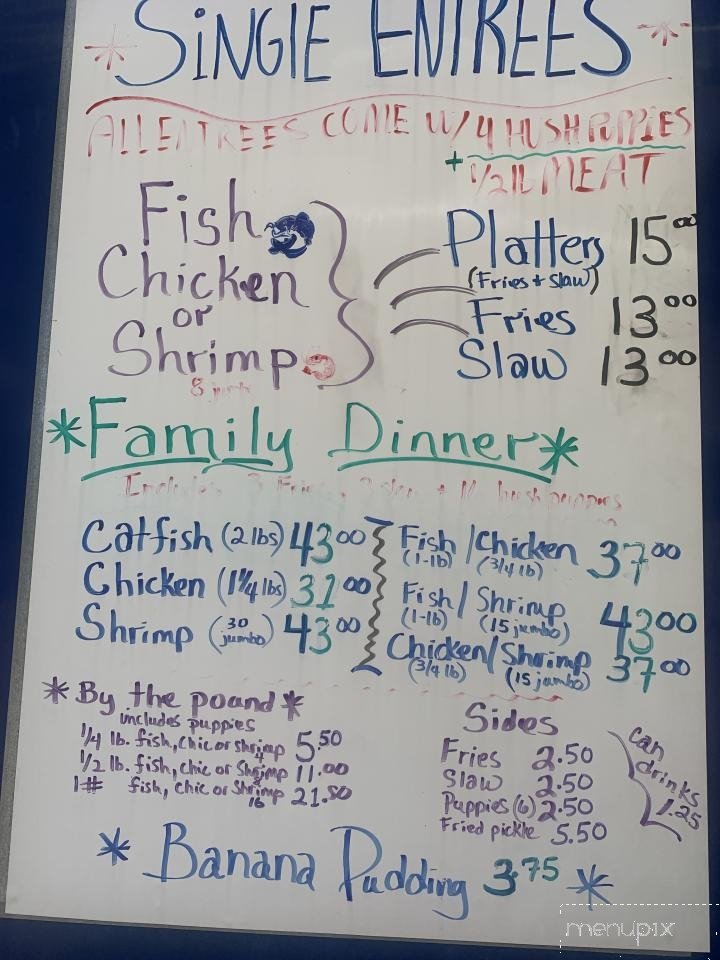 * SINGLE ENTREES *
ALL ENTREES COME W/ 4 HUSH PUPPIES
+ 1/2 lb MEAT
Fish
Chicken
or
Shrimp
8
Platters 15 00
(Fries + slaw)
Fries 13 00
Slaw 13 00
*Family Dinner*
Includes 3 Fries, slaw + hushpuppies
Catfish (2 lbs) 43 00
Chicken (1 1/4 lbs) 31 00
Shrimp (30 jumbo) 43 00
Fish / Chicken 37 00
(1-lb) (3/4 lb)
Fish / Shrimp 43 00
(1-lb) (15 jumbo)
Chicken / Shrimp 37 00
(3/4 lb) (15 jumbo)
* By the pound *
includes puppies
1/4 lb. fish, chic or shrimp 5.50
4
1/2 lb. fish, chic or Shrimp 11.00
8
1# fish, chic or Shrimp 21.50
16
Sides
Fries 2.50
Slaw 2.50
Puppies (6) 2.50
Fried pickle 5.50
can
drinks
1.25
* Banana Pudding 3.75 *
menupix